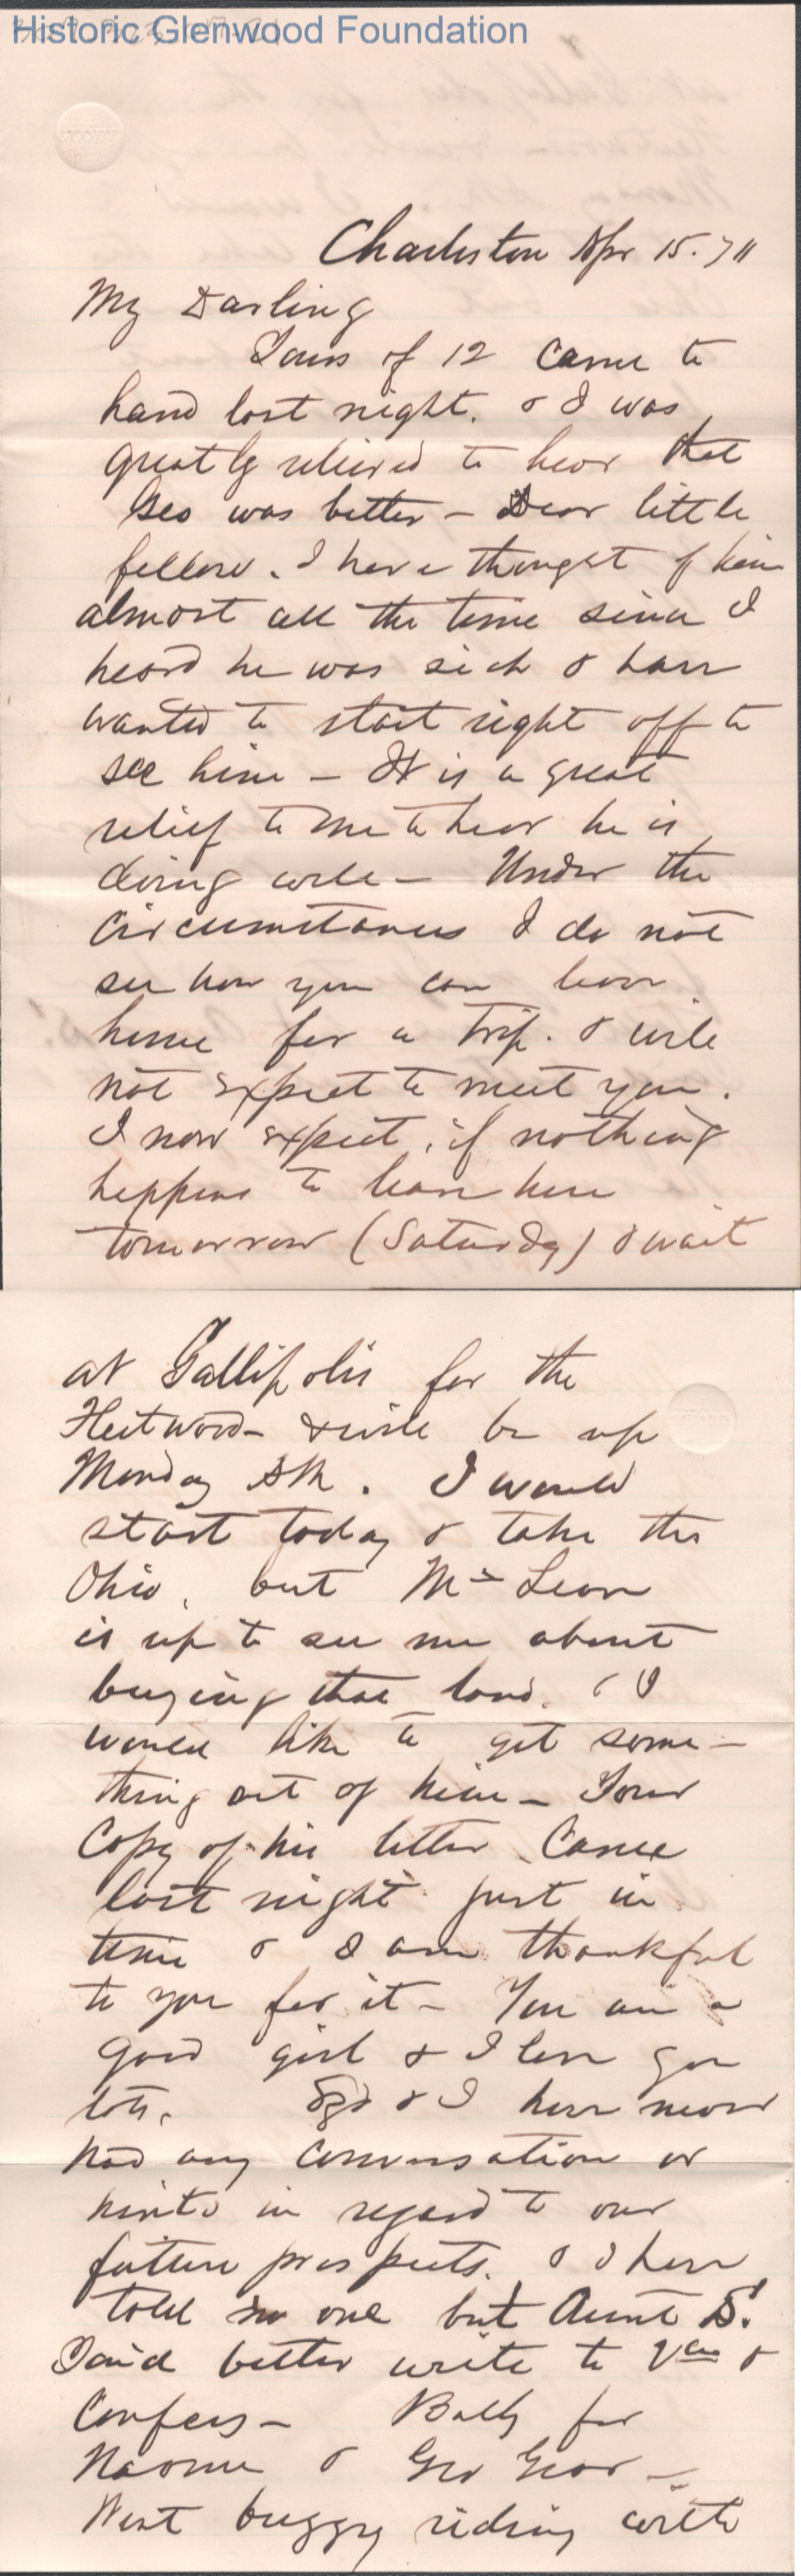 Historic Glenwood Foundation
Charleston Apr 15. 71
My Darling
Yours of 12 came to
hand last night. & I was
greatly relieved to hear that
Geo was better – Dear little
fellow. I have thought of him
almost all the time since I
heard he was sick & have
wanted to start right off to
see him – It is a great
relief to me to hear he is
doing well – Under the
circumstances I do not
see how you can leave
home for a trip. & will
not expect to meet you.
I now expect, if nothing
happens to leave here
tomorrow (Saturday) & wait
at Gallipolis for the
Fleetwood – & will be up
Monday AM. I would
start today & take the
Ohio, but Mr
is up to see me about
buying that land. & I
would like to get some-
thing out of him – Your
Copy of his letter Came
last night just in
time & I am thankful
to you for it – You are a
good girl & I love you
lots. & I have never
had any conversation or
hints in regard to our
future prospects. & I have
told no one but Aunt S.
better write to &
Confess – Bully for
Naomi & Geo
Went buggy riding with